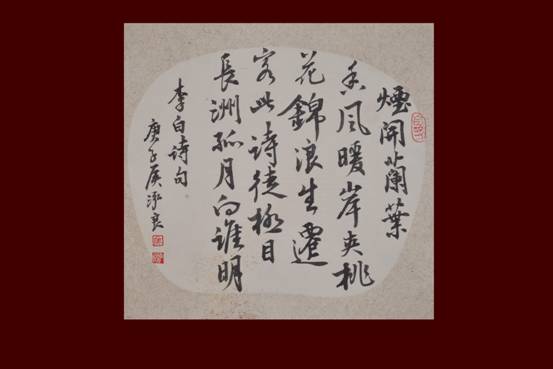 煙開蘭葉
香风暖岸夾桃
花錦浪生遷
客此诗徒極目
長洲孤月向誰明
李白诗句
庚子侯良